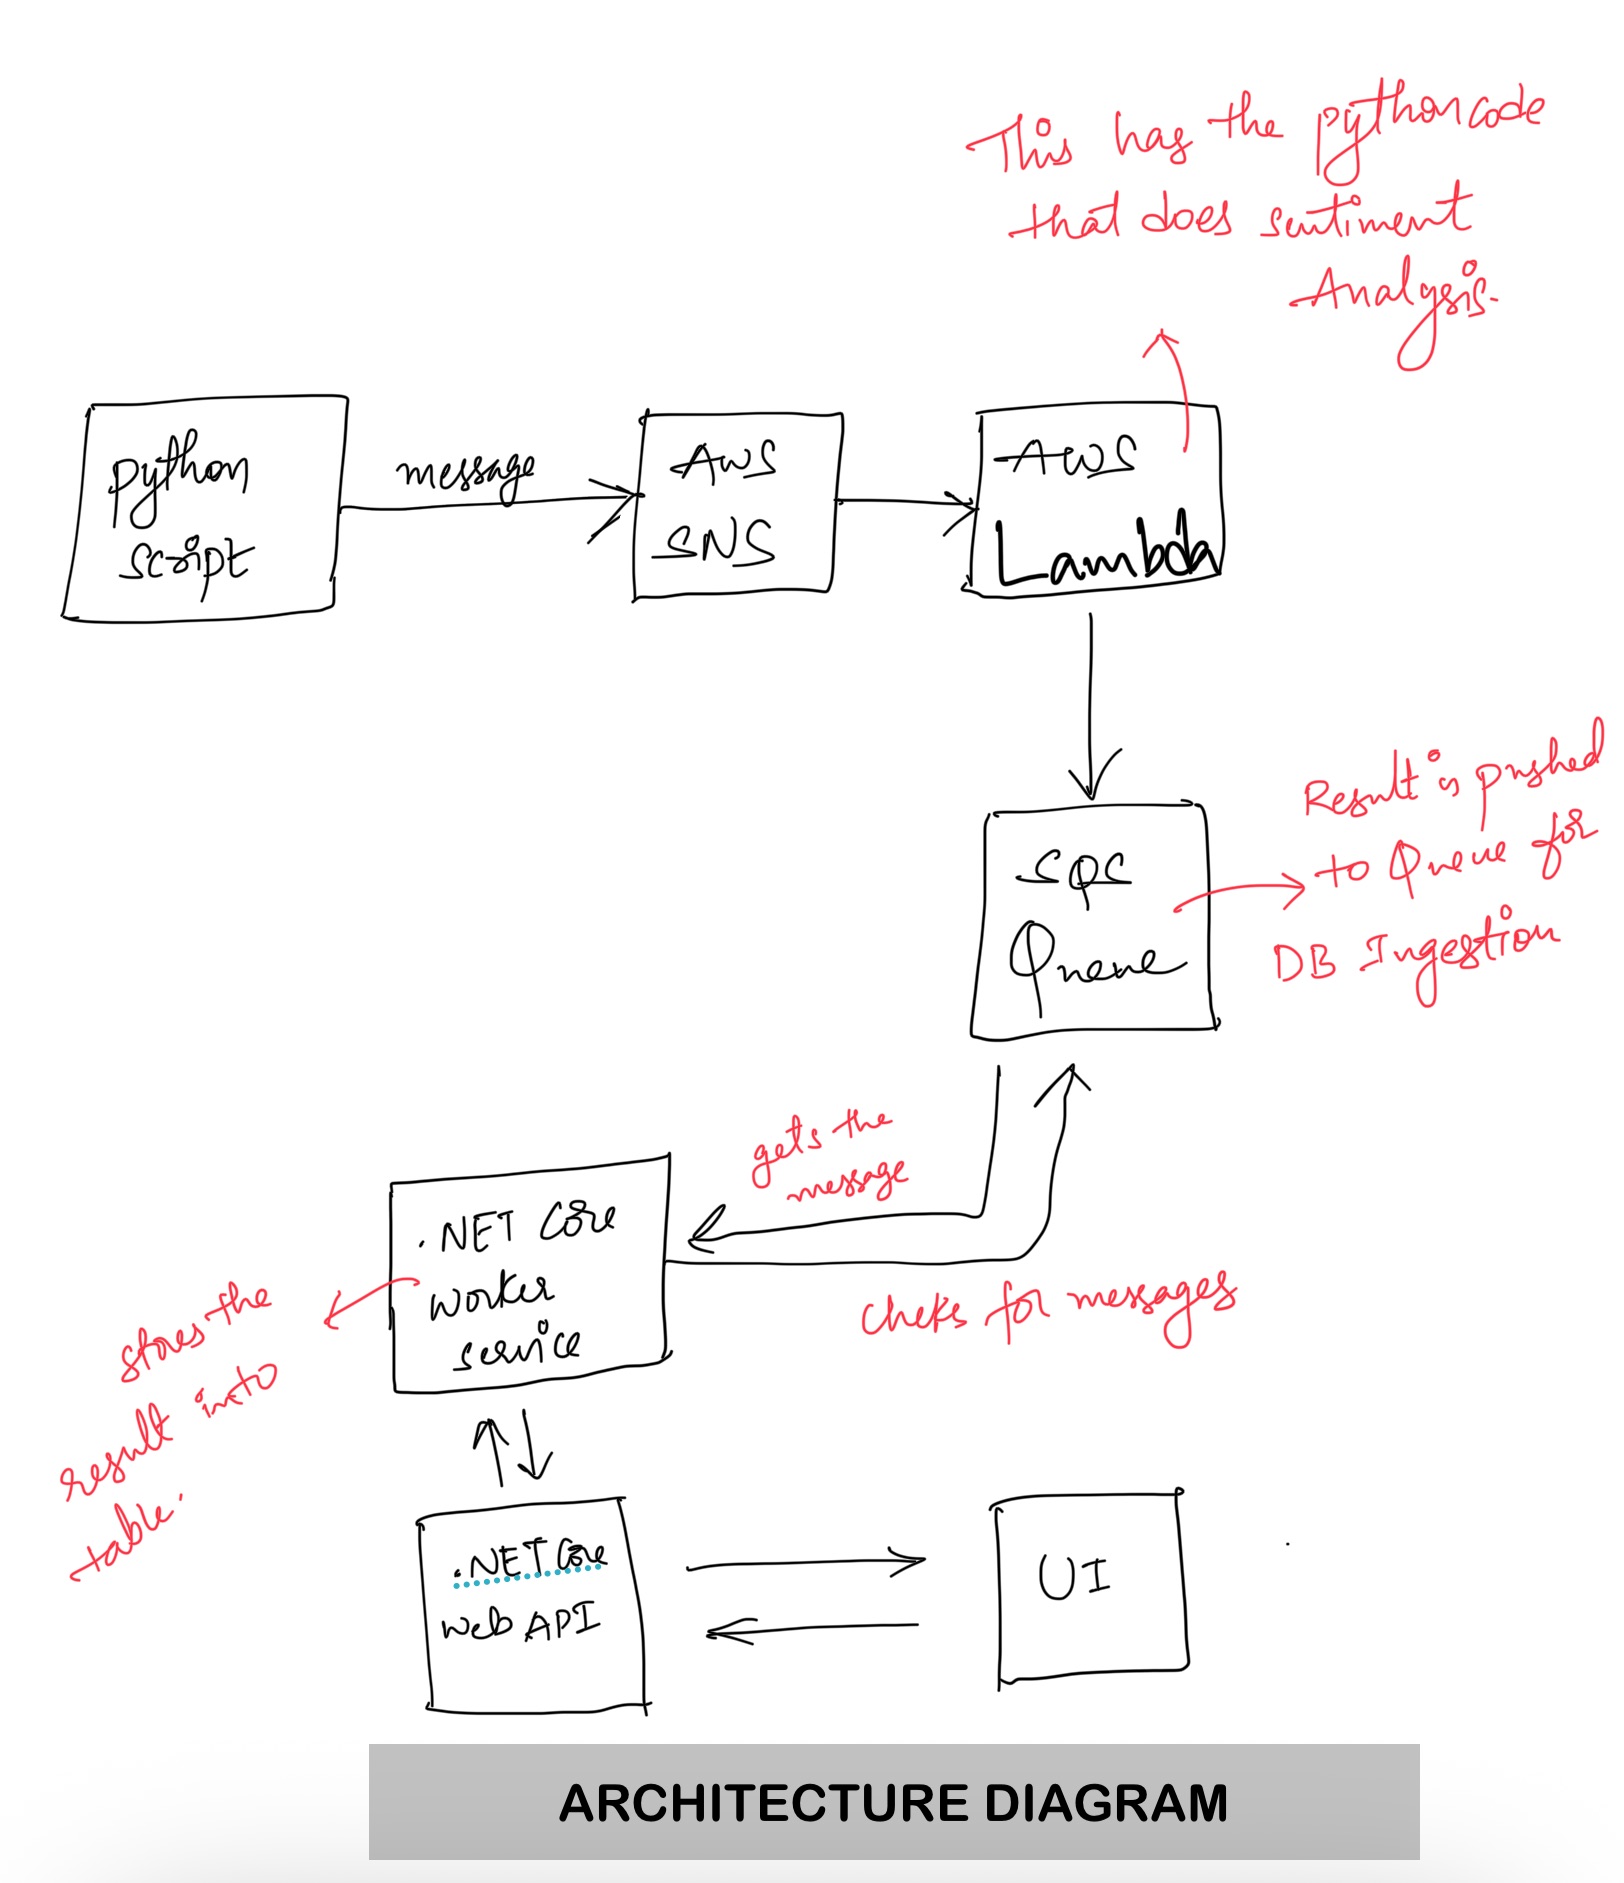 This has the python code
that does sentiment
Analysis.
Python
script
message
AWS
SNS
AWS
Lambda
Result is pushed
to Queue for
DB Ingestion
SQS
Queue
gets the
message
.NET Core
worker
service
cheks for messages
stores the
result into
table.
.NET Core
Web API
UI
ARCHITECTURE DIAGRAM